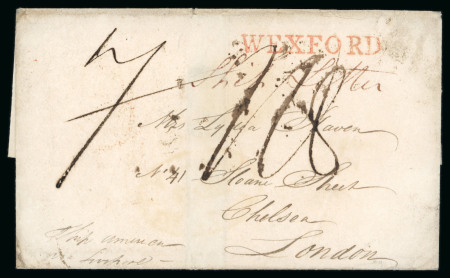 WEXFORD
7 1/8
Ship Letter
Mrs Lydia Haven
No 41 Sloane Street
Chelsea
London
Ship